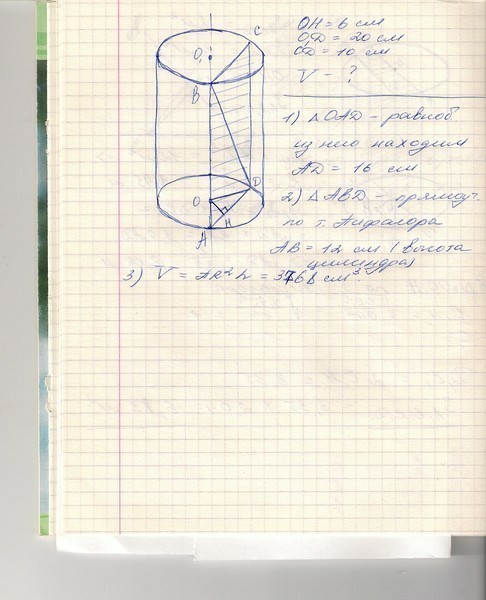 OH = 6 см
O,D = 20 см
OD = 10 см
V - ?
1) △OAD - равноб.
из него находим
AD = 16 см
2) △ABD - прямоуг.
по т. Пифагора
AB = 12 см (высота
цилиндра)
3) V = πR²h = 3768 см³.
O₁
C
B
O
D
H
A